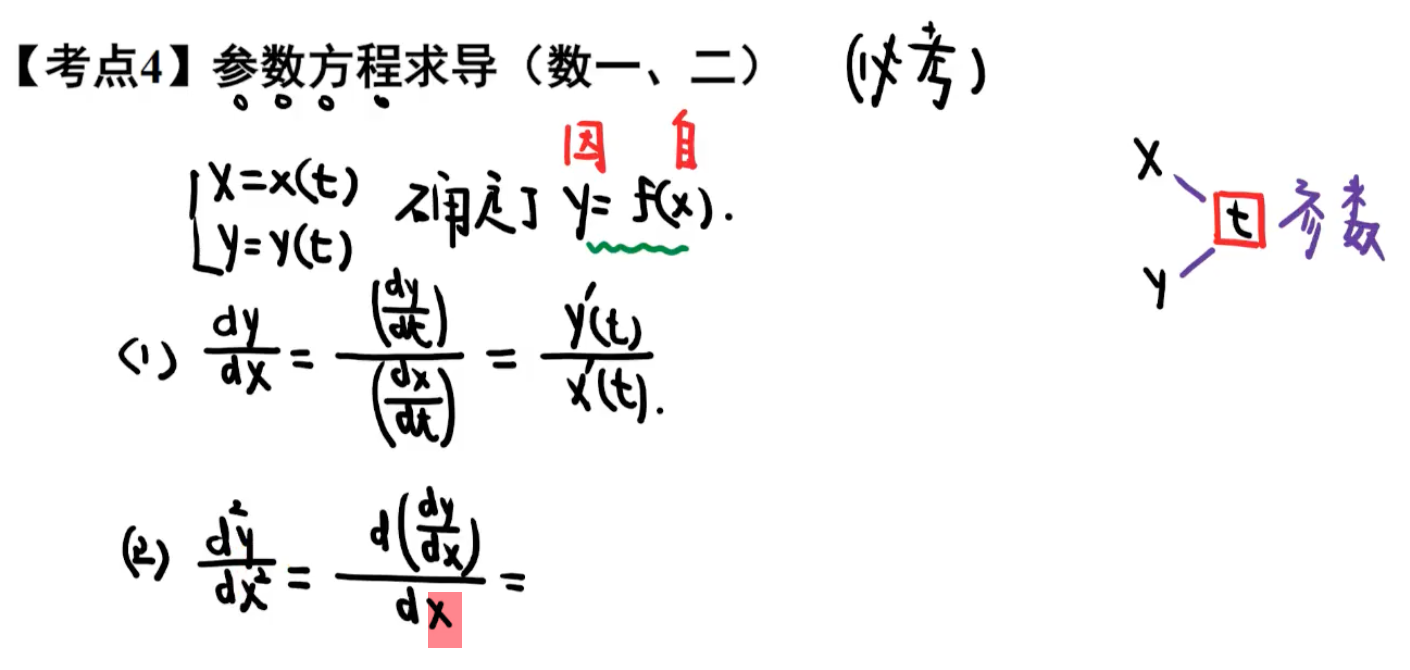 【考点4】参数方程求导（数一、二） (必考)
因 自
x=x(t)
y=y(t)
确定了 y=f(x).
x
y
t 参数
(1) dy/dx = (dy/dt)/(dx/dt) = y'(t)/x'(t).
(2) d²y/dx² = d(dy/dx)/dx =